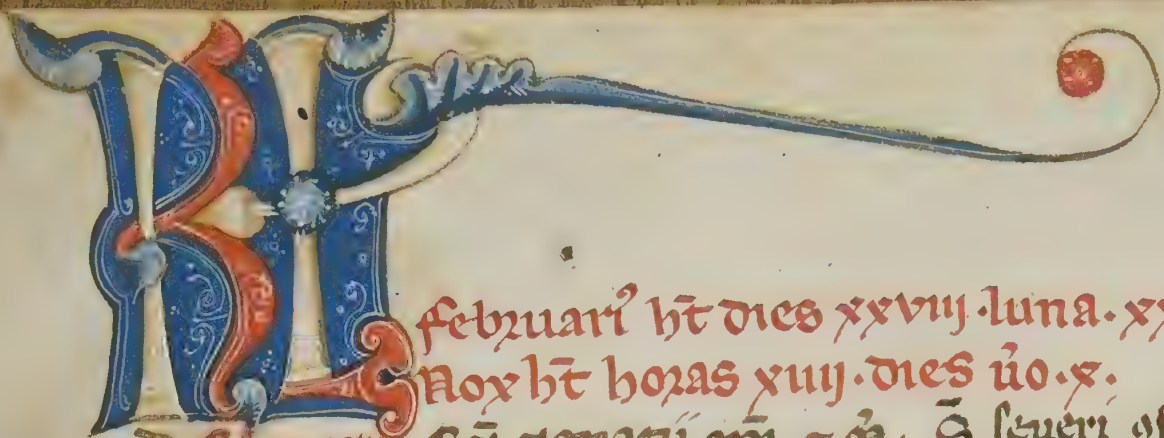 KL
februari⁹ ħt dies xxviij ·luna· xx
Nox ħt horas xiiij· dies u̾o ·x·
S̄ seueri